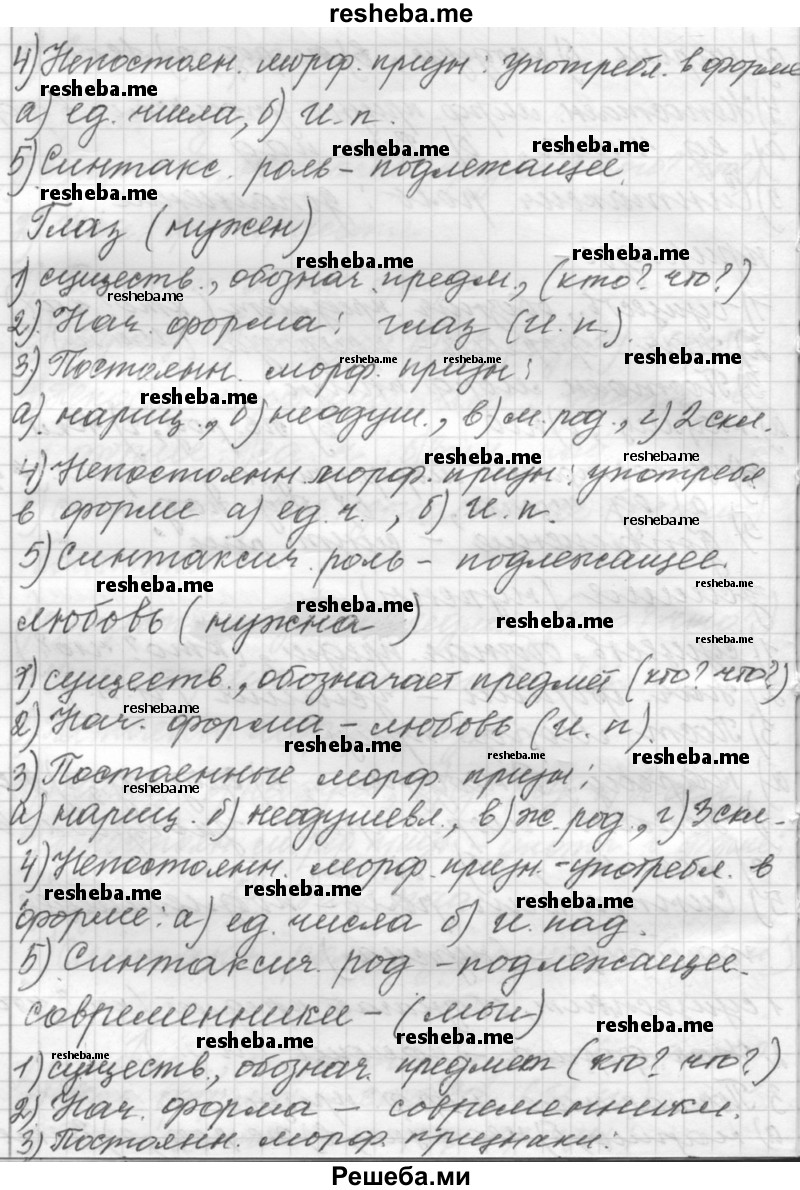 resheba.me
4) Непостоян. морф. призн: употребл. в форме
resheba.me
а) ед. числа, б) И.п.
resheba.me resheba.me
5) Синтакс. роль - подлежащее.
resheba.me
Глаз (нужен)
resheba.me resheba.me
1) существ., обознач. предм., (кто? что?)
resheba.me
2) Нач. форма: глаз (И.п.)
resheba.me resheba.me resheba.me
3) Постоянн. морф. призн:
resheba.me
а) нариц., б) неодуш., в) м. род., г) 2 скл.
resheba.me resheba.me
4) Непостоянн. морф. призн: употребл.
в форме а) ед.ч., б) И.п.
resheba.me
5) Синтаксич. роль - подлежащее.
resheba.me resheba.me
resheba.me resheba.me
любовь (нужна)
resheba.me
1) существ., обозначает предмет (кто? что?)
resheba.me
2) Нач. форма - любовь (И.п).
resheba.me resheba.me resheba.me
3) Постаенные морф призн:
resheba.me
а) нариц. б) неодушевл., в) ж. род., г) 3 скл.
4) Непостоянн. морф. призн. - употребл. в
resheba.me resheba.me resheba.me
форме: а) ед. числа б) И. пад.
5) Синтаксич. род - подлежащее.
современники - (мои)
resheba.me resheba.me resheba.me
resheba.me
1) существ., обознач. предмет (кто? что?)
2) Нач. форма - современники.
3) Постоянн. морф. признаки:
Решеба.ми